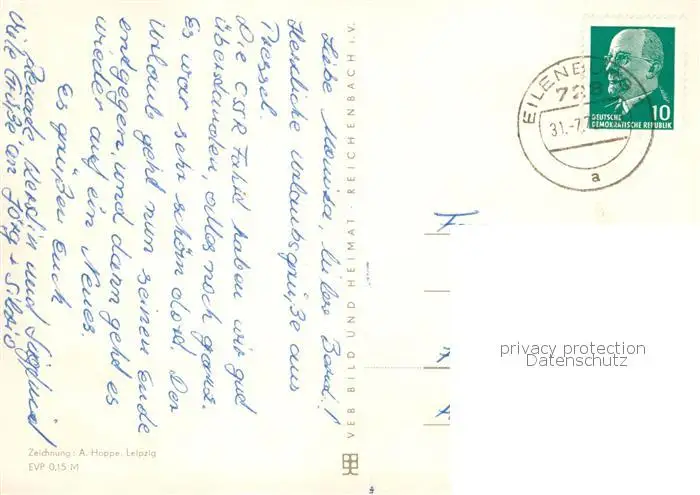 Liebe Monika, lieber Bernd!
Herzliche Urlaubsgrüße aus
Pressel.
Die CSSR Fahrt haben wir gut
überstanden, alles noch ganz.
Es war sehr schön dort. Der
Urlaub geht nun seinem Ende
entgegen, und dann geht es
wieder auf ein Neues.
Es grüßen Euch
Renate, Kerstin und Siegfried
Viele Grüße an Jörg + Silvio
Zeichnung: A. Hoppe, Leipzig
EVP 0,15 M
VEB BILD UND HEIMAT · REICHENBACH i. V.
EILENBURG
728
31.-7.7
a
10
DEUTSCHE
DEMOKRATISCHE REPUBLIK
F
privacy protection
Datenschutz